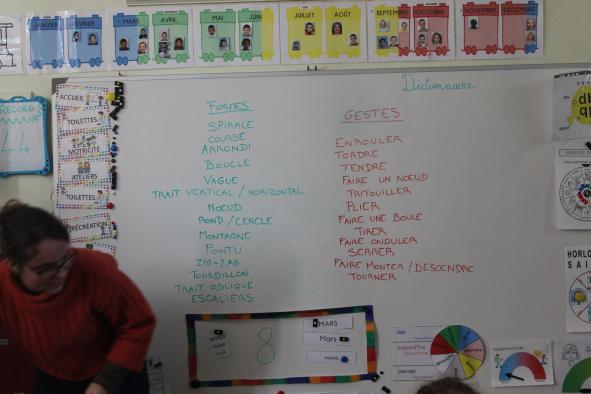 JANVIER
FÉVRIER
MARS
AVRIL
MAI
JUIN
JUILLET
AOÛT
SEPTEMBRE
OCTOBRE
NOVEMBRE
DÉCEMBRE
RECORD
44
ACCUEIL
TOILETTES
MOTRICITÉ
ATELIERS
TOILETTES
RÉCRÉATION
Dictionnaire
FORMES
SPIRALE
COURBE
ARRONDI
BOUCLE
VAGUE
TRAIT VERTICAL / HORIZONTAL
NOEUD
ROND / CERCLE
MONTAGNE
POINTU
ZIG-ZAG
TOURBILLON
TRAIT OBLIQUE
ESCALIERS
GESTES
ENROULER
TORDRE
TENDRE
FAIRE UN NOEUD
TRITOUILLER
PLIER
FAIRE UNE BOULE
TIRER
FAIRE ONDULER
SERRER
FAIRE MONTER / DESCENDRE
TOURNER
8
MARS
Mars
mars
Hier
Aujourd'hui
Demain
Aujourd'hui
HORLO
SAI